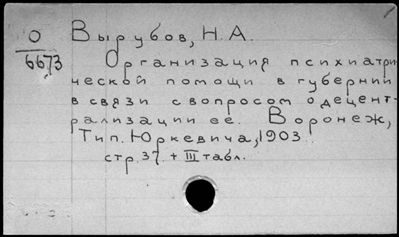 О Вырубов, Н.А.
6673 Организация психиатри
ческой помощи в губернии
в связи с вопросом о децент-
рализации ее. Воронеж,
Тип. Юркевича, 1903.
стр. 37. + III табл.